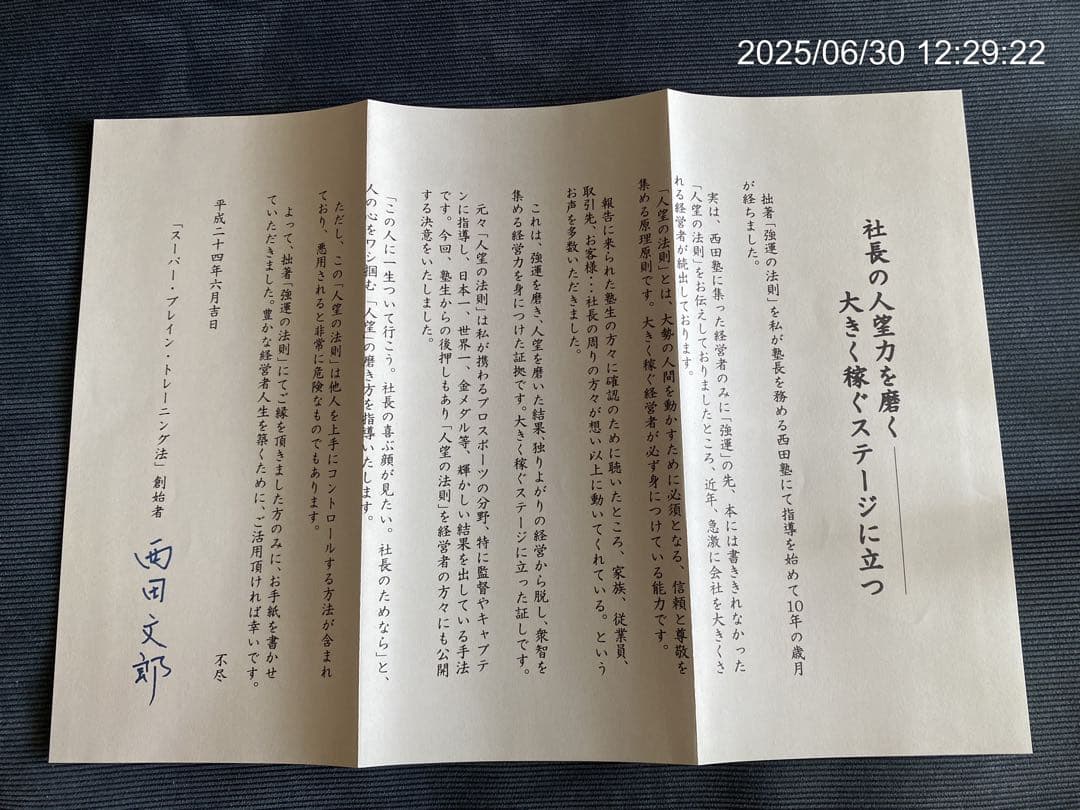 2025/06/30 12:29:22
社長の人望力を磨く
大きく稼ぐステージに立つ
拙著「強運の法則」を私が塾長を務める西田塾にて指導を始めて10年の歳月
が経ちました。
実は、西田塾に集った経営者のみに「強運」の先、本には書ききれなかった
「人望の法則」をお伝えしておりましたところ、近年、急激に会社を大きくさ
れる経営者が続出しております。
「人望の法則」とは、大勢の人間を動かすために必須となる、信頼と尊敬を
集める原理原則です。大きく稼ぐ経営者が必ず身につけている能力です。
報告に来られた塾生の方々に確認のために聴いたところ、家族、従業員、
取引先、お客様・・・社長の周りの方々が想い以上に動いてくれている。という
お声を多数いただきました。
これは、強運を磨き、人望を磨いた結果、独りよがりの経営から脱し、衆智を
集める経営力を身につけた証拠です。大きく稼ぐステージに立った証しです。
元々「人望の法則」は私が携わるプロスポーツの分野、特に監督やキャプテ
ンに指導し、日本一、世界一、金メダル等、輝かしい結果を出している手法
です。今回、塾生からの後押しもあり「人望の法則」を経営者の方々にも公開
する決意をいたしました。
「この人に一生ついて行こう。社長の喜ぶ顔が見たい。社長のためなら」と、
人の心をワシ掴む「人望」の磨き方を指導いたします。
ただし、この「人望の法則」は他人を上手にコントロールする方法が含まれ
ており、悪用されると非常に危険なものでもあります。
よって、拙著「強運の法則」にてご縁を頂きました方のみに、お手紙を書かせ
ていただきました。豊かな経営者人生を築くために、ご活用頂ければ幸いです。
不尽
平成二十四年六月吉日
「スーパー・ブレイン・トレーニング法」創始者
西田文郎